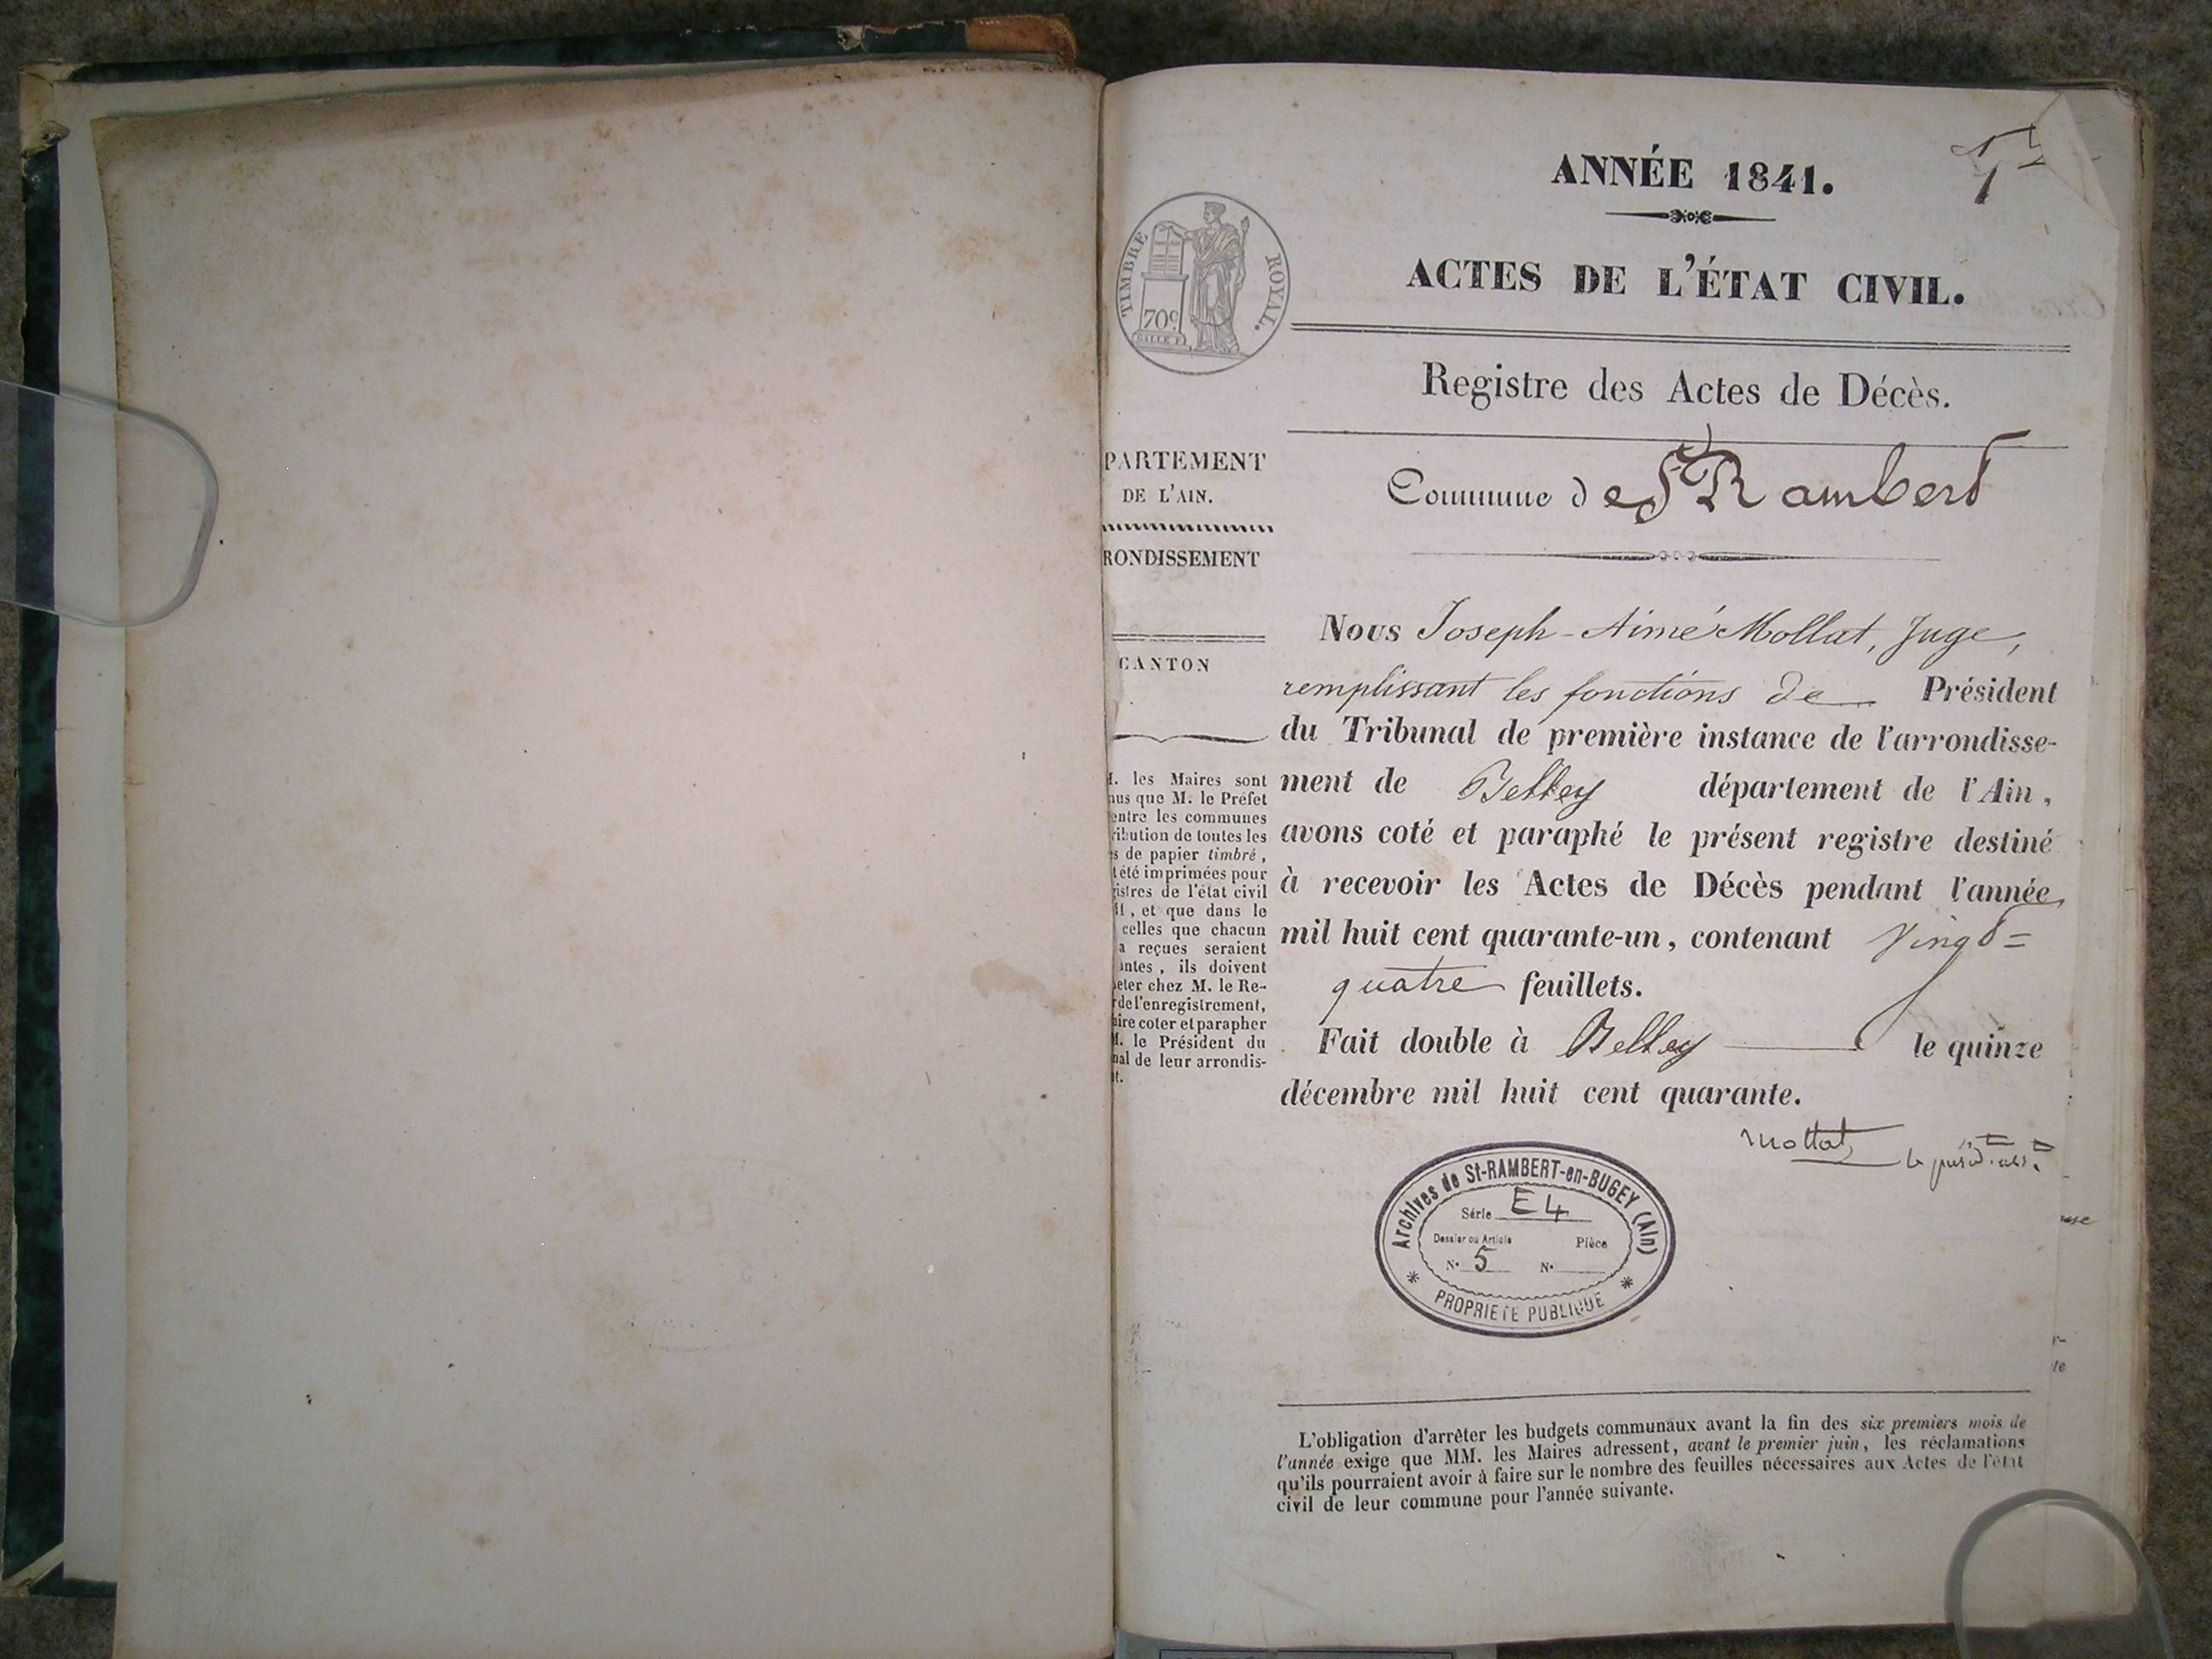 ANNÉE 1841.
ACTES DE L'ÉTAT CIVIL.
TIMBRE ROYAL.
70c
Registre des Actes de Décès.
Commune de St Rambert
PARTEMENT
DE L'AIN.
RONDISSEMENT
CANTON
. les Maires sont
us que M. le Préfet
entre les communes
ribution de toutes les
s de papier timbré,
t été imprimées pour
istres de l'état civil
1, et que dans le
celles que chacun
a reçues seraient
antes, ils doivent
eter chez M. le Re-
de l'enregistrement,
aire coter et parapher
. le Président du
nal de leur arrondis-
t.
Nous Joseph-Aimé Mollat, Juge,
remplissant les fonctions de Président
du Tribunal de première instance de l'arrondisse-
ment de Belley département de l'Ain,
avons coté et paraphé le présent registre destiné
à recevoir les Actes de Décès pendant l'année
mil huit cent quarante-un, contenant vingt=
quatre feuillets.
Fait double à Belley le quinze
décembre mil huit cent quarante.
Mollat
Archives de St-RAMBERT-en-BUGEY (Ain)
Série E4
Dossier ou Article Pièce
N° 5 N°
* PROPRIETE PUBLIQUE *
L'obligation d'arrêter les budgets communaux avant la fin des six premiers mois de
l'année exige que MM. les Maires adressent, avant le premier juin, les réclamations
qu'ils pourraient avoir à faire sur le nombre des feuilles nécessaires aux Actes de l'état
civil de leur commune pour l'année suivante.